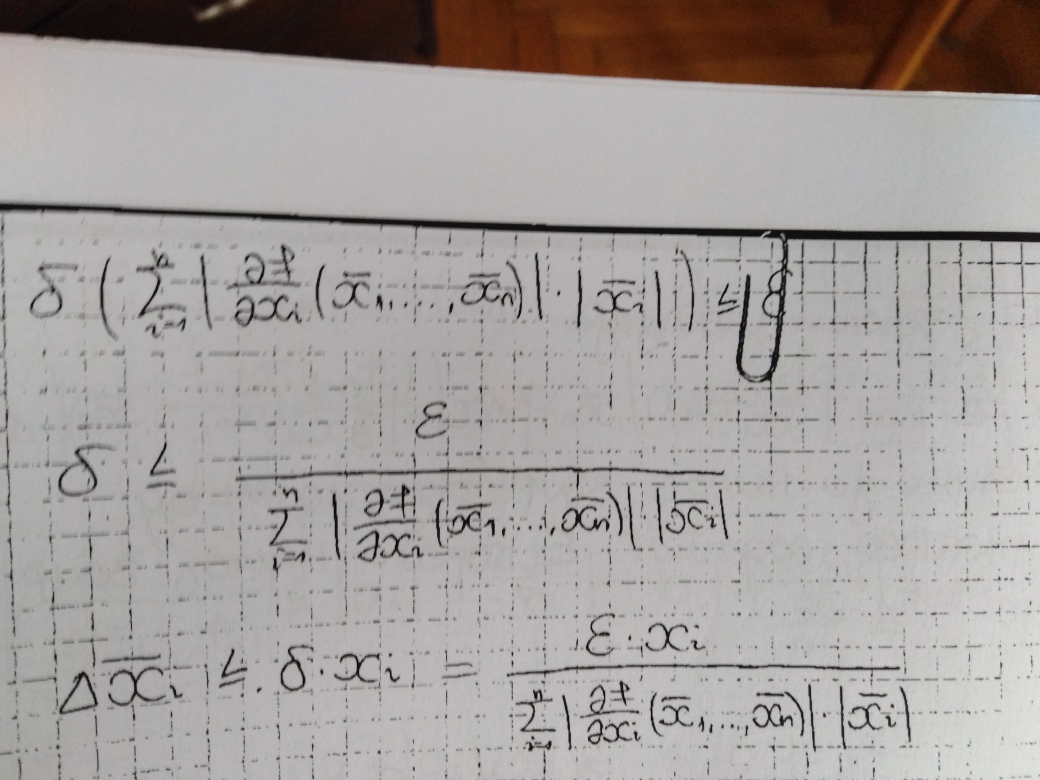 δ ( ∑_{i=1}^{n} | ∂f/∂x_i (x̄_1, ...., x̄_n) | · | x̄_i | ) ≤
δ ≤ ε / ( ∑_{i=1}^{n} | ∂f/∂x_i (x̄_1, ..., x̄_n) | · | x̄_i | )
Δx̄_i ≤ δ · x_i = ε · x_i / ( ∑_{i=1}^{n} | ∂f/∂x_i (x̄_1, ..., x̄_n) | · | x̄_i | )